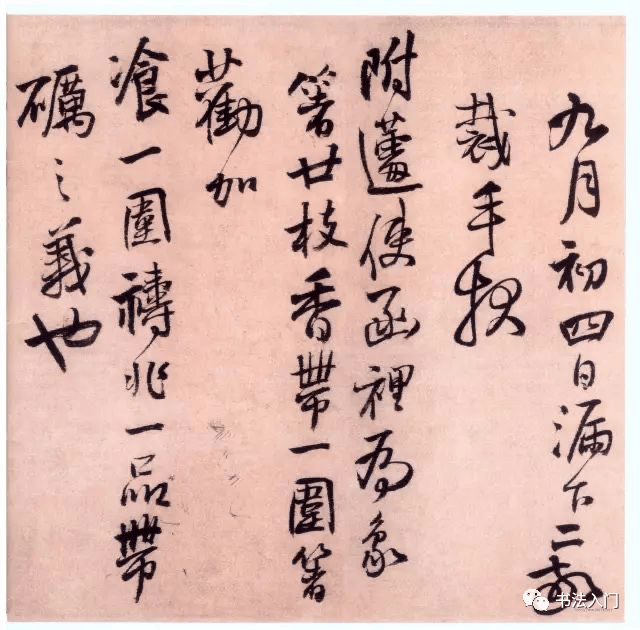 九月初四日漏下二鼓
裁手
附 使函裡為象
箸廿枝香帶一圍箸
勸加
飡一圍禱兆一品帶
礪之義也
书法入门